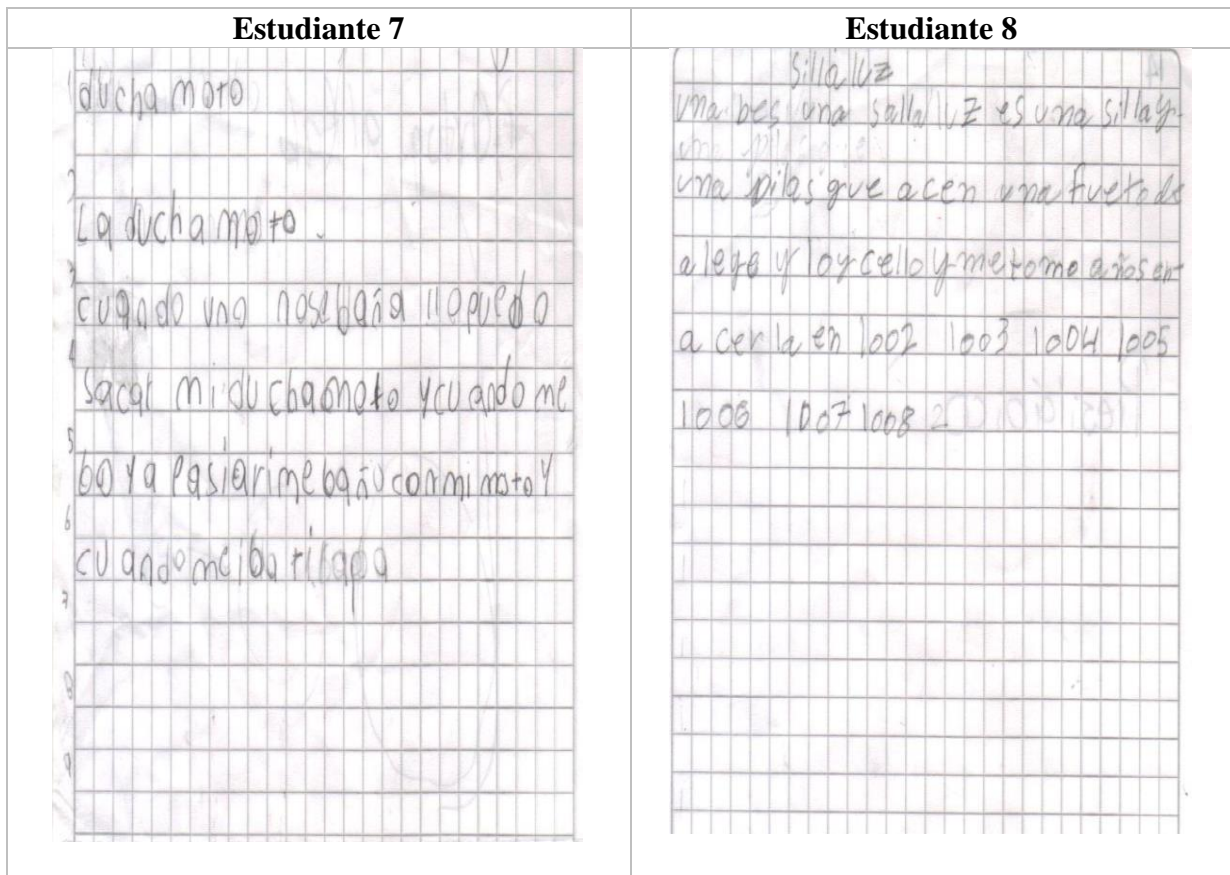 Estudiante 7
ducha moto
La ducha moto.
cuando uno nosebaña llo puedo
sacar mi ducha moto y cuando me
bo y a pasiar i me baño con mi moto y
cuando me iba
Estudiante 8
Silla luz
una bes una salla luz es una silla y
una pilas que acen una
a y lo y me tomo años en
a cer la en 1002 1003 1004 1005
1006 1007 1008 2